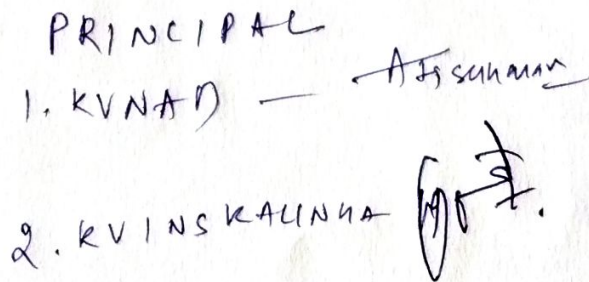 PRINCIPAL
1. KVNAD —
2. KVINS KALINGA